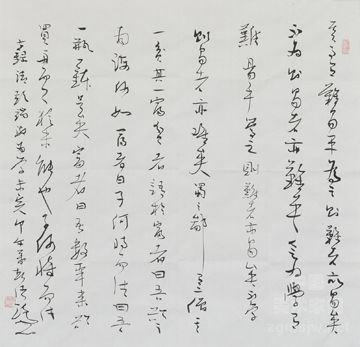 天下事有難易乎為之則難者亦易矣
不為則易者亦難矣人之為學有
難易乎學之則難者亦易矣不學
則易者亦難矣蜀之鄙有二僧其
一貧其一富貧者語於富者曰吾欲之
南海何如富者曰子何恃而往曰吾
一瓶一缽足矣富者曰吾數年來欲
買舟而下猶未能也子何恃而往
彭端淑為學